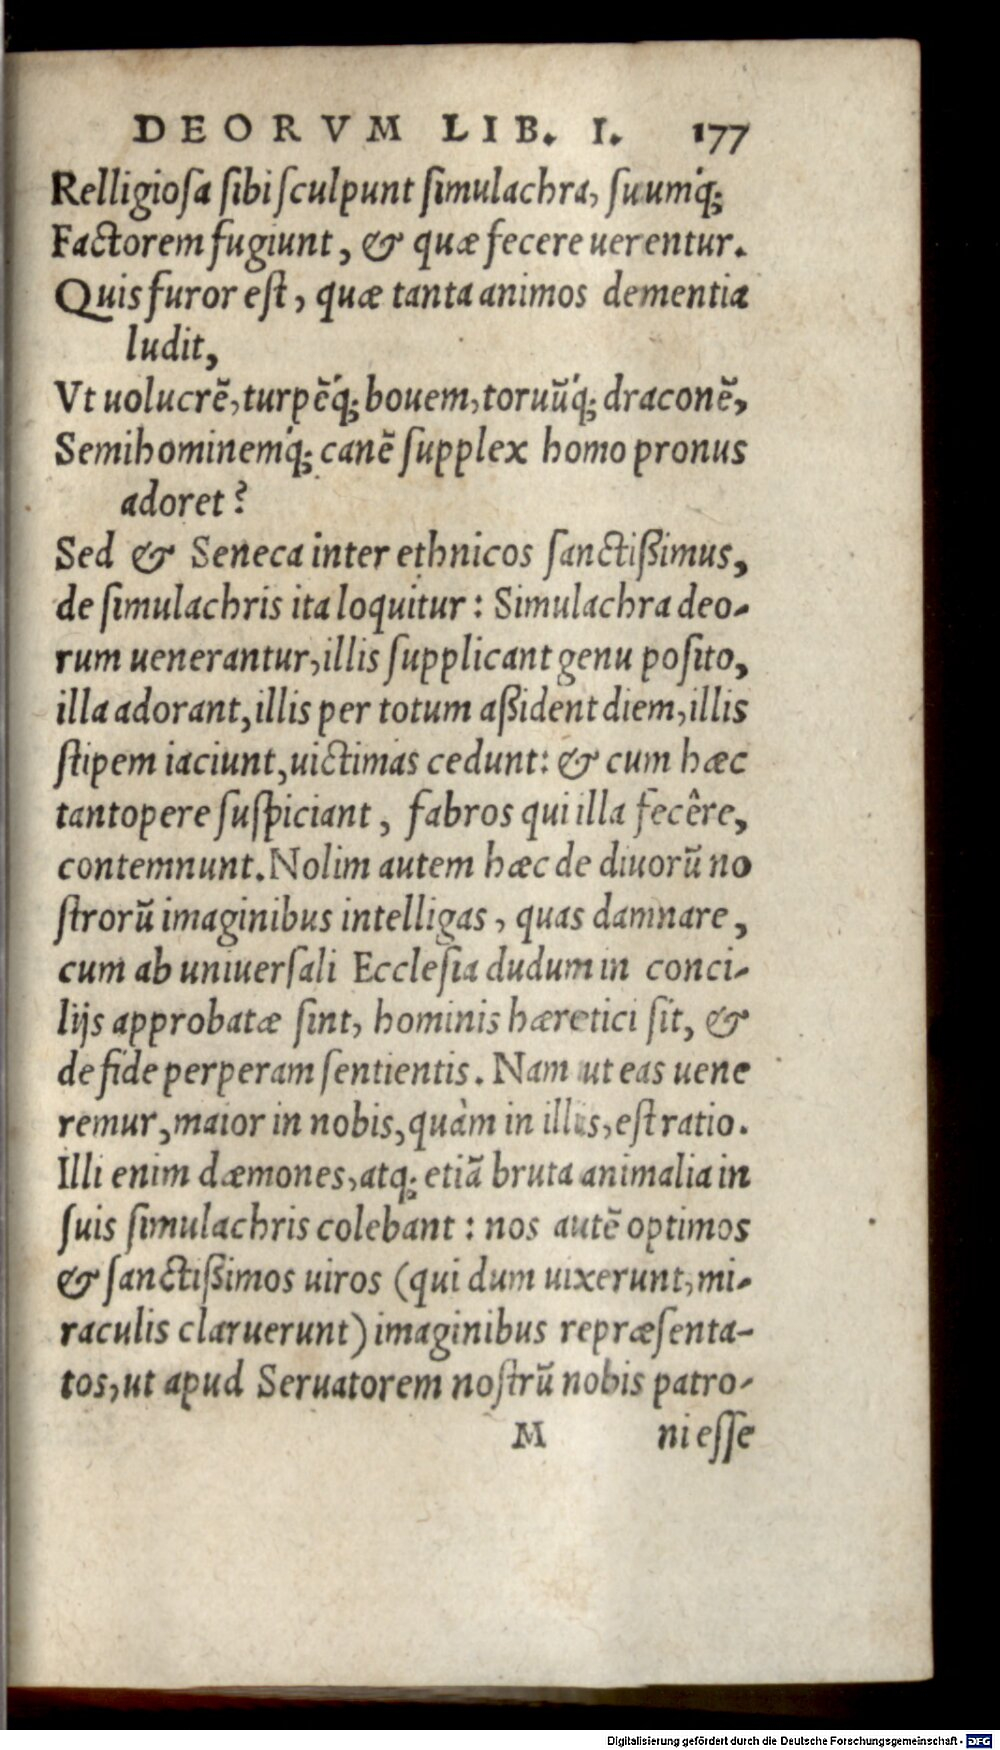 DEORVM LIB. I. 177
Relligiosa sibi sculpunt simulachra, suumq́;
Factorem fugiunt, & quæ fecere uerentur.
Quis furor est, quæ tanta animos dementia
ludit,
Vt uolucrẽ, turpẽq́; bouem, toruũq́; draconẽ,
Semihominemq́; canẽ supplex homo pronus
adoret?
Sed & Seneca inter ethnicos sanctißimus,
de simulachris ita loquitur: Simulachra deo-
rum uenerantur, illis supplicant genu posito,
illa adorant, illis per totum aßident diem, illis
stipem iaciunt, uictimas cedunt: & cum hæc
tantopere suspiciant, fabros qui illa fecêre,
contemnunt. Nolim autem hæc de diuorũ no
strorũ imaginibus intelligas, quas damnare,
cum ab uniuersali Ecclesia dudum in conci-
lijs approbatæ sint, hominis hæretici sit, &
de fide perperam sentientis. Nam ut eas uene
remur, maior in nobis, quàm in illis, est ratio.
Illi enim dæmones, atq; etiã bruta animalia in
suis simulachris colebant: nos autẽ optimos
& sanctißimos uiros (qui dum uixerunt, mi-
raculis claruerunt) imaginibus repræsenta-
tos, ut apud Seruatorem nostrũ nobis patro-
M ni esse
Digitalisierung gefördert durch die Deutsche Forschungsgemeinschaft - DFG